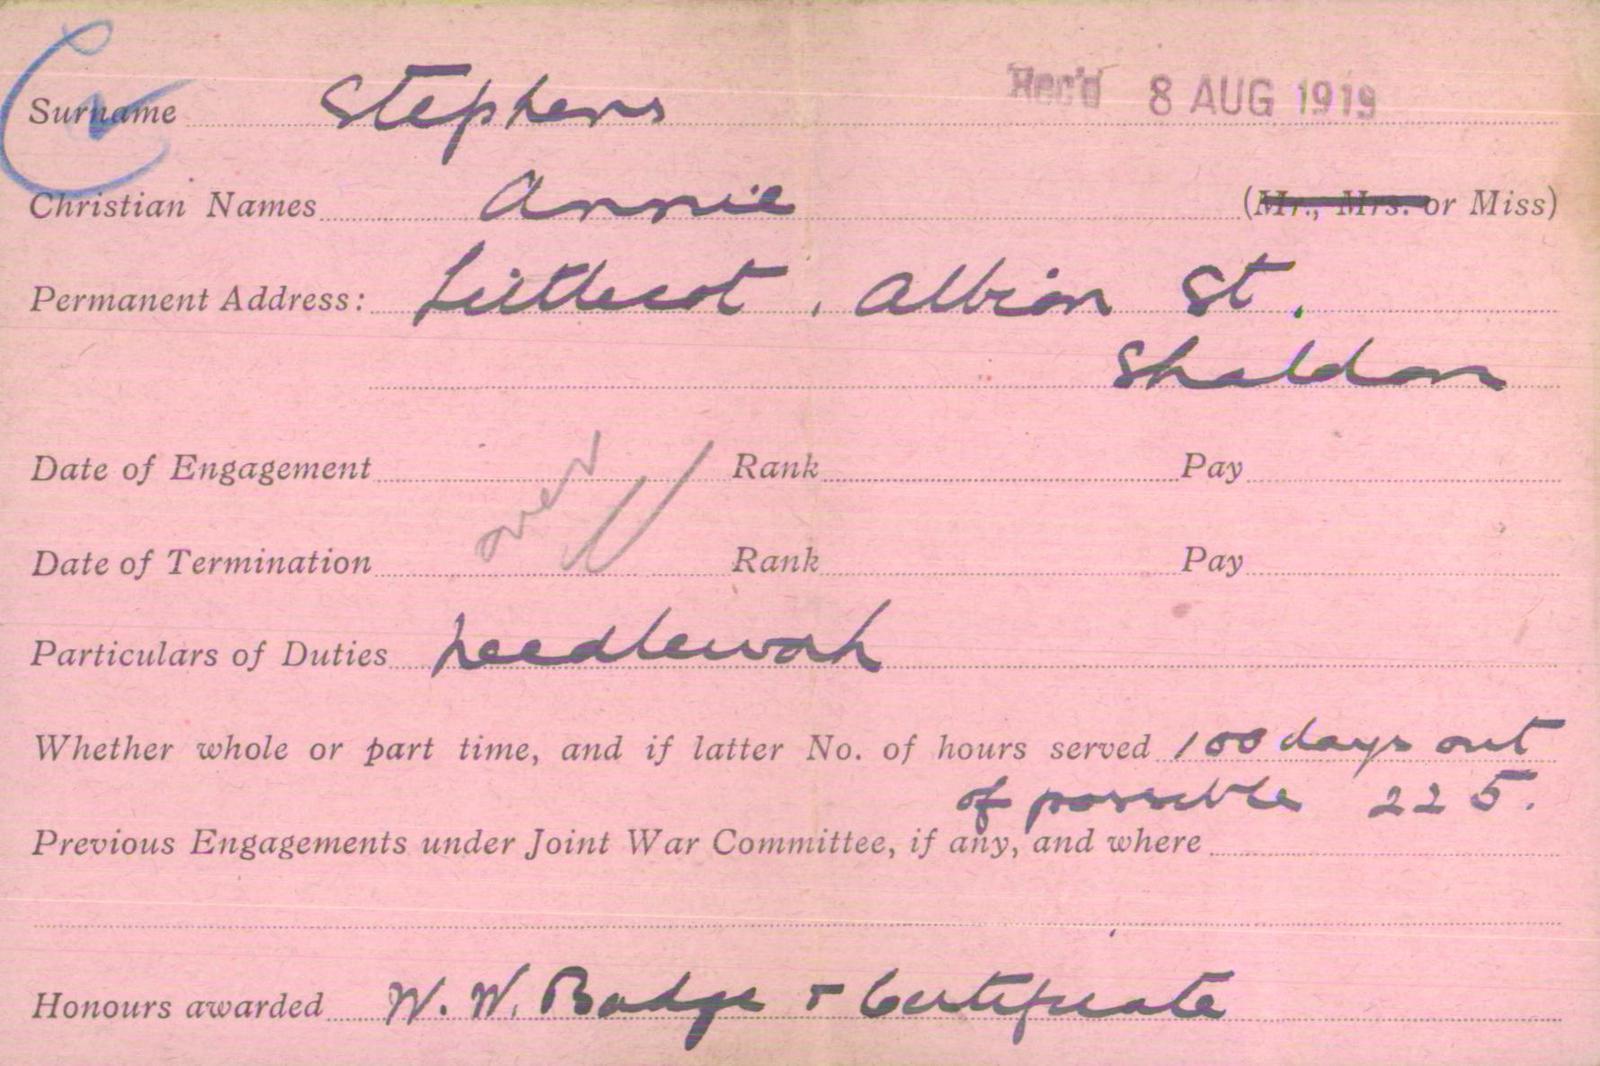 Surname Stephens Rec'd 8 AUG 1919
Christian Names Annie (Mr., Mrs. or Miss)
Permanent Address: Littlecot, Albion St.
Shaldon
Date of Engagement Rank Pay
over
Date of Termination Rank Pay
Particulars of Duties Needlework
Whether whole or part time, and if latter No. of hours served 100 days out
of possible 225.
Previous Engagements under Joint War Committee, if any, and where
Honours awarded W. W. Badge & Certificate